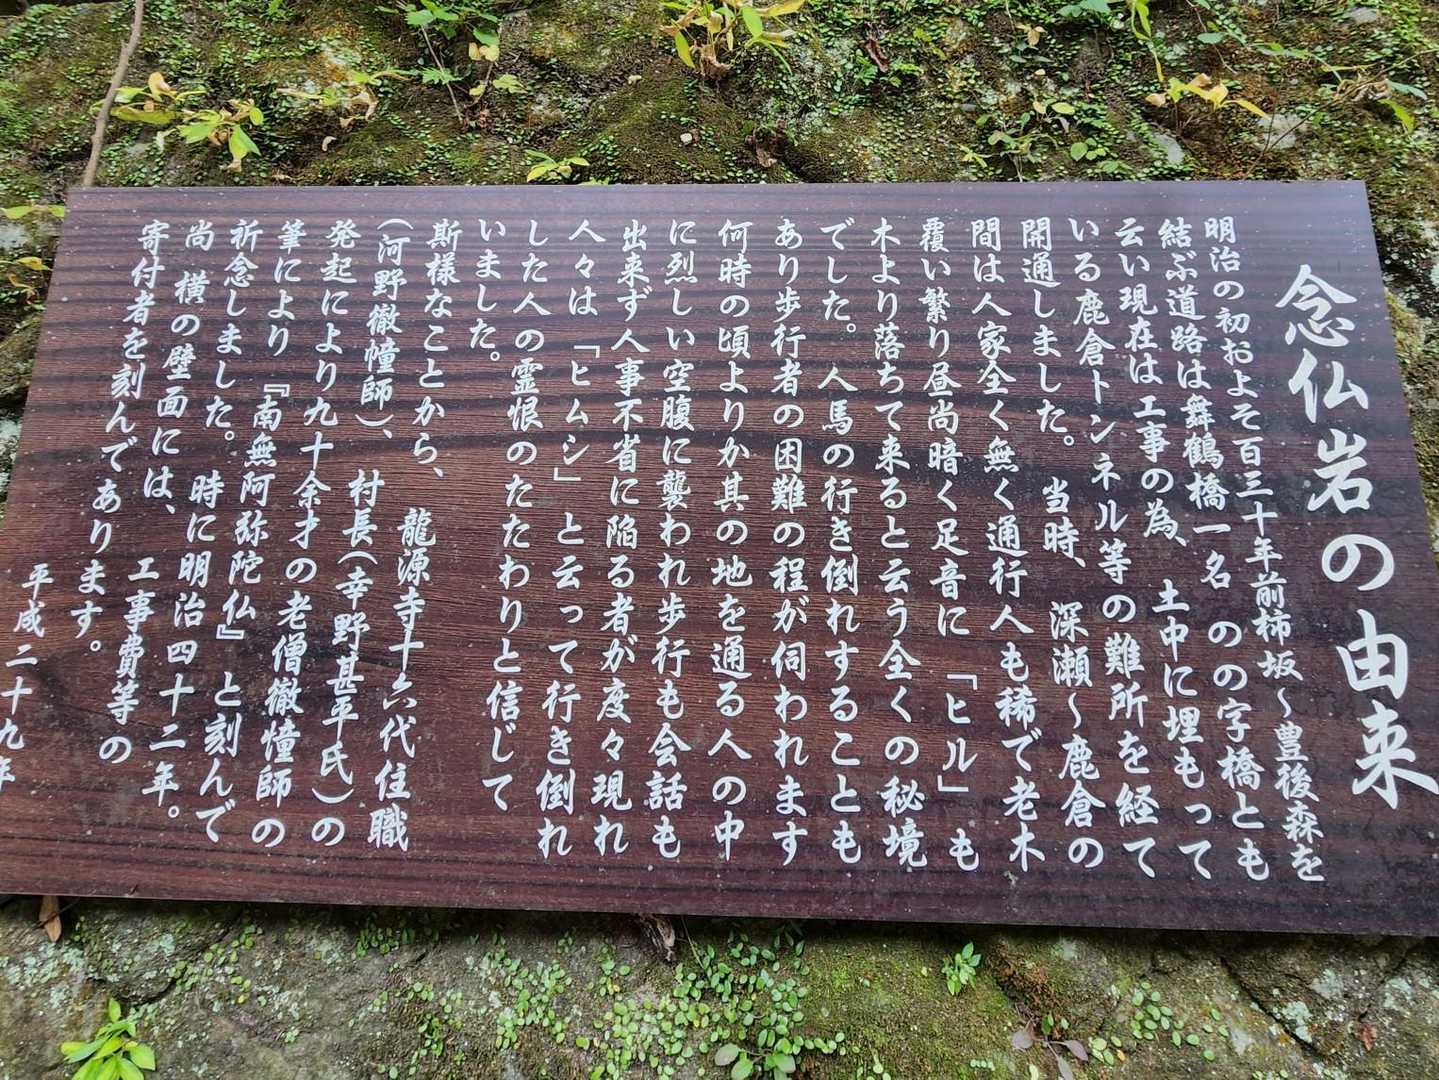 念仏岩の由来
明治の初およそ百三十年前柿坂～豊後森を
結ぶ道路は舞鶴橋一名　のの字橋とも
云い現在は工事の為、土中に埋もって
いる鹿倉トンネル等の難所を経て
開通しました。当時、深瀬～鹿倉の
間は人家全く無く通行人も稀で老木
覆い繁り昼尚暗く足音に「ヒル」も
木より落ちて来ると云う全くの秘境
でした。人馬の行き倒れすることも
あり歩行者の困難の程が伺われます
何時の頃よりか其の地を通る人の中
に烈しい空腹に襲われ歩行も会話も
出来ず人事不省に陥る者が度々現れ
人々は「ヒムシ」と云って行き倒れ
した人の霊恨のたたわりと信じて
いました。
斯様なことから、　龍源寺十六代住職
（河野徹幢師）、　村長（幸野甚平氏）の
発起により九十余才の老僧徹憧師の
筆により『南無阿弥陀仏』と刻んで
祈念しました。　時に明治四十二年。
尚　横の壁面には、　工事費等の
寄付者を刻んであります。
平成二十九年